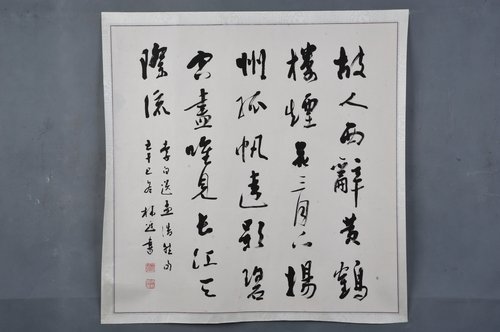 故人西辭黄鶴
樓煙花三月下揚
州孤帆遠影碧
空盡唯見長江天
際流
李白送孟浩然
壬午冬書